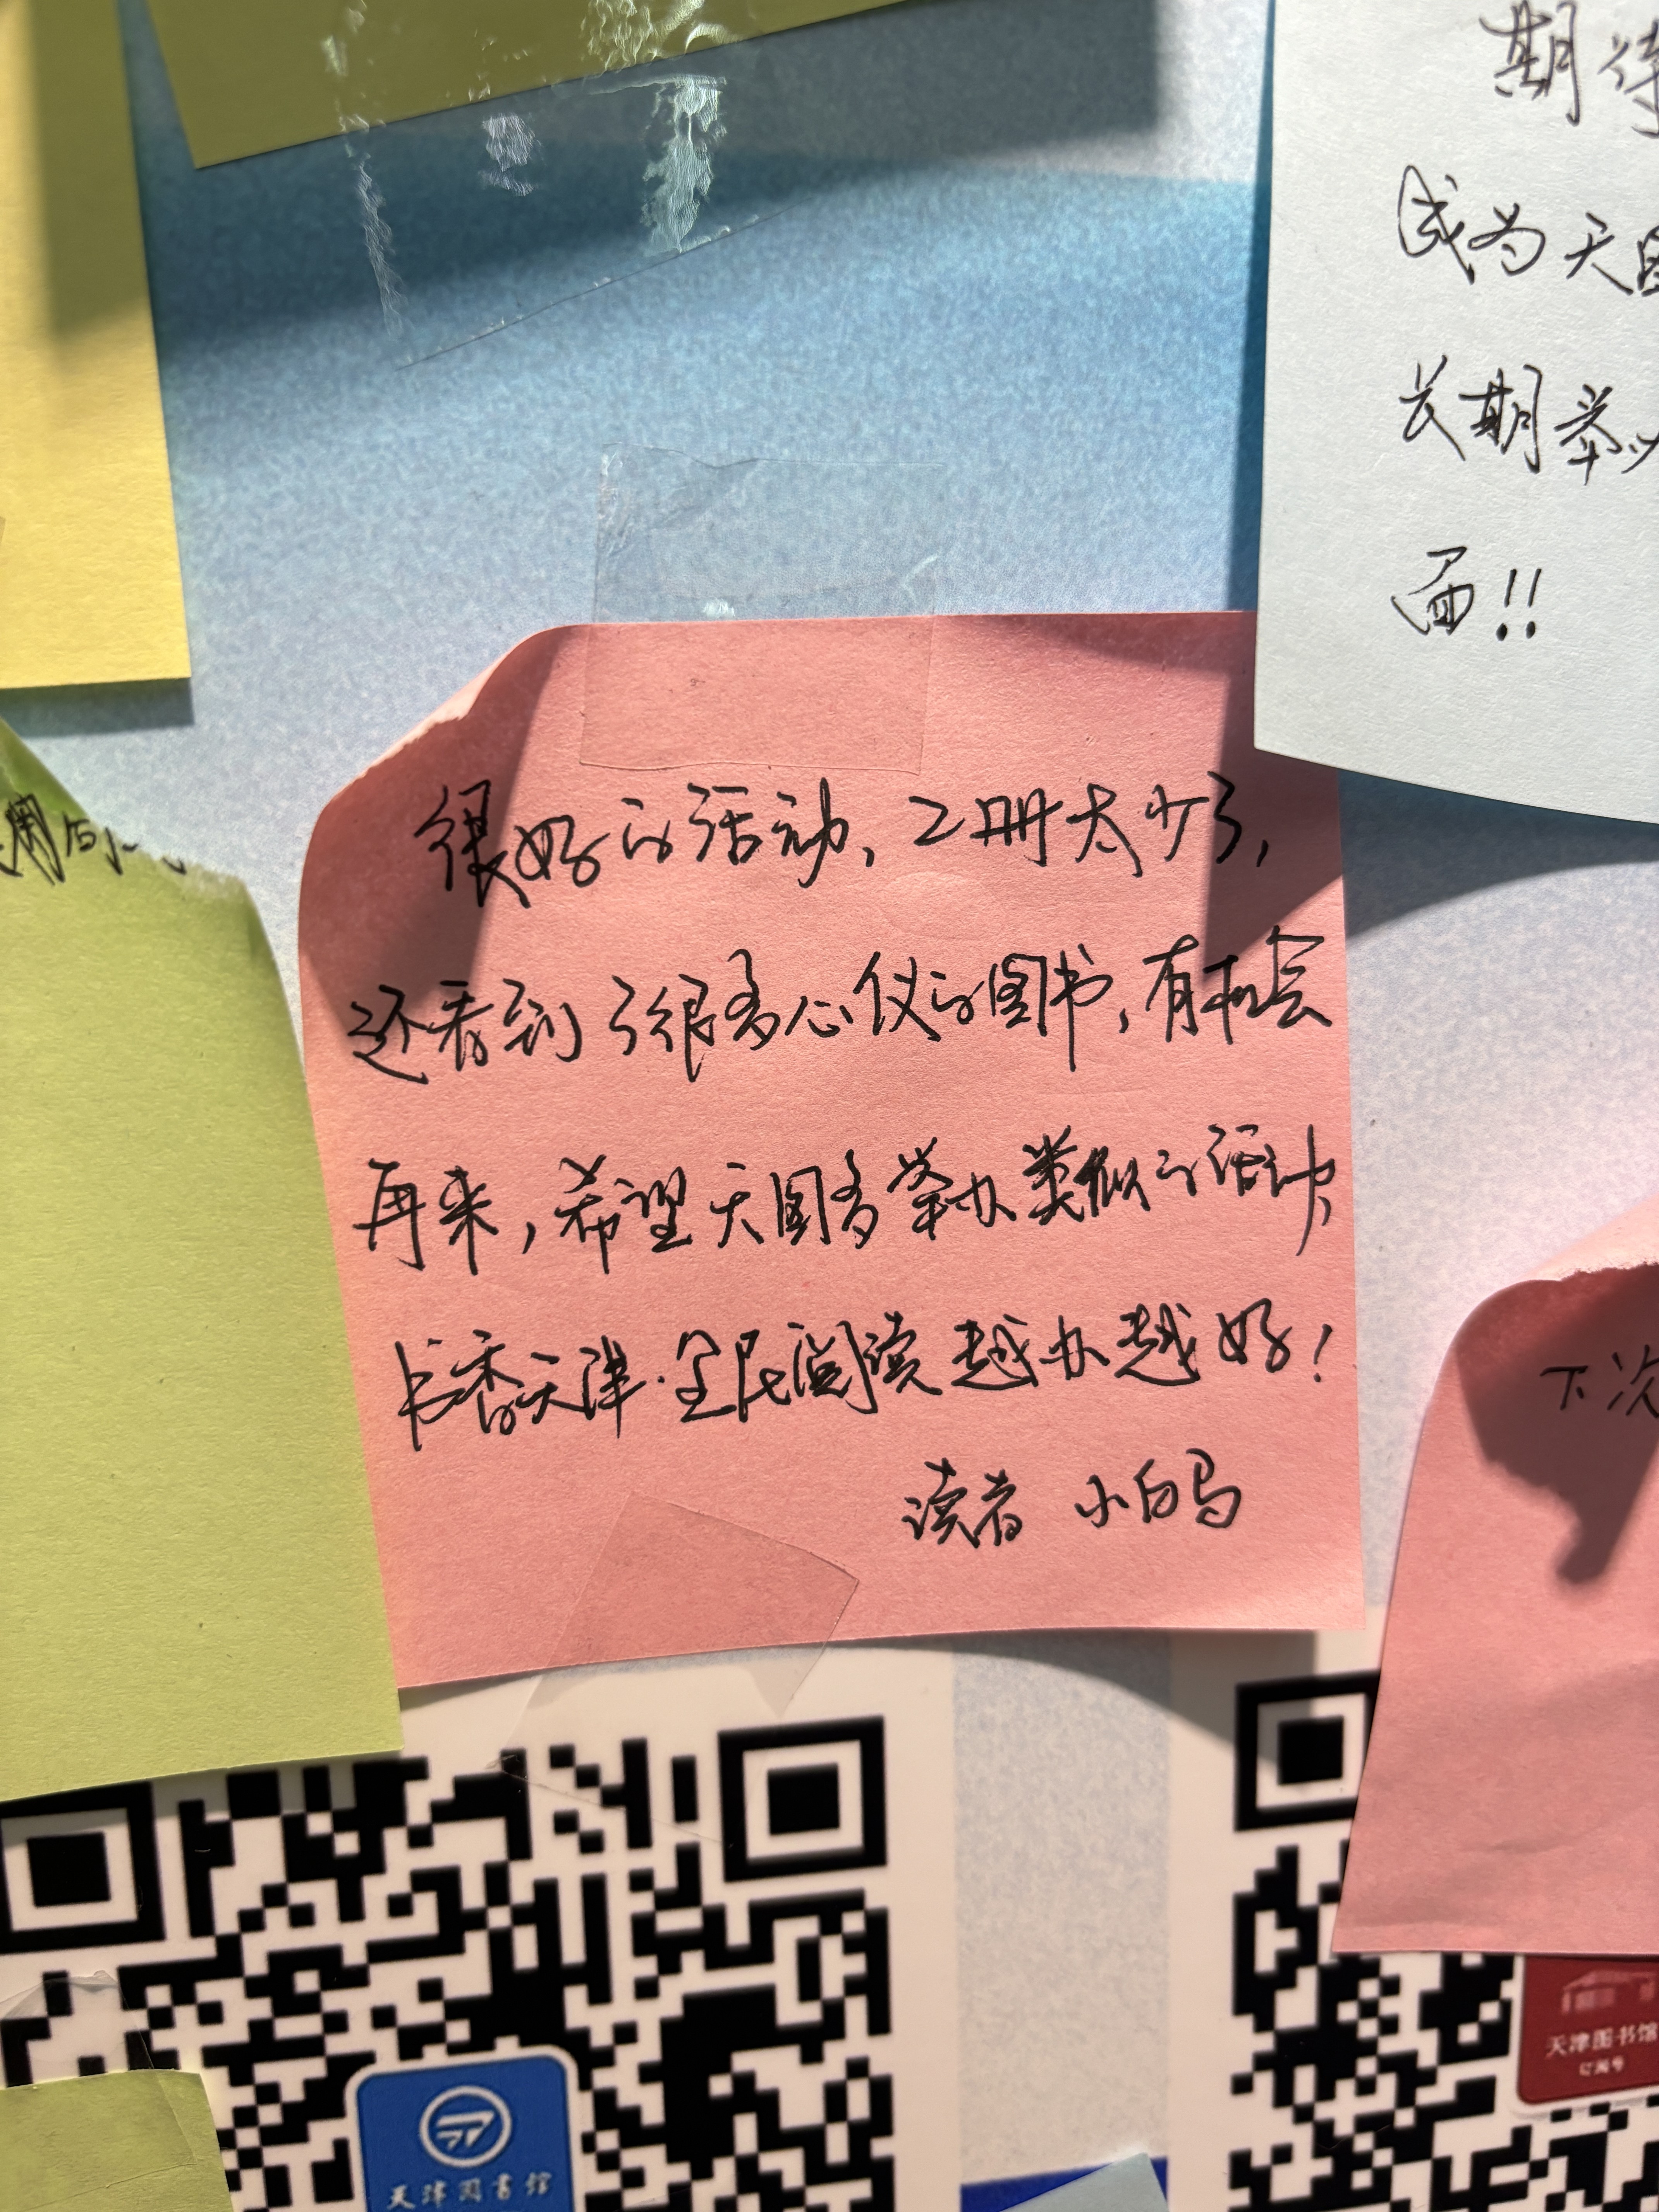 期待
成为天图
长期举办
面!!
很好的活动,2册太少了,
还看到了很多心仪的图书,有机会
再来,希望天图多举办类似的活动,
书香天津·全民阅读越办越好!
读者 小白马
下次
天津图书馆
订阅号
天津图书馆